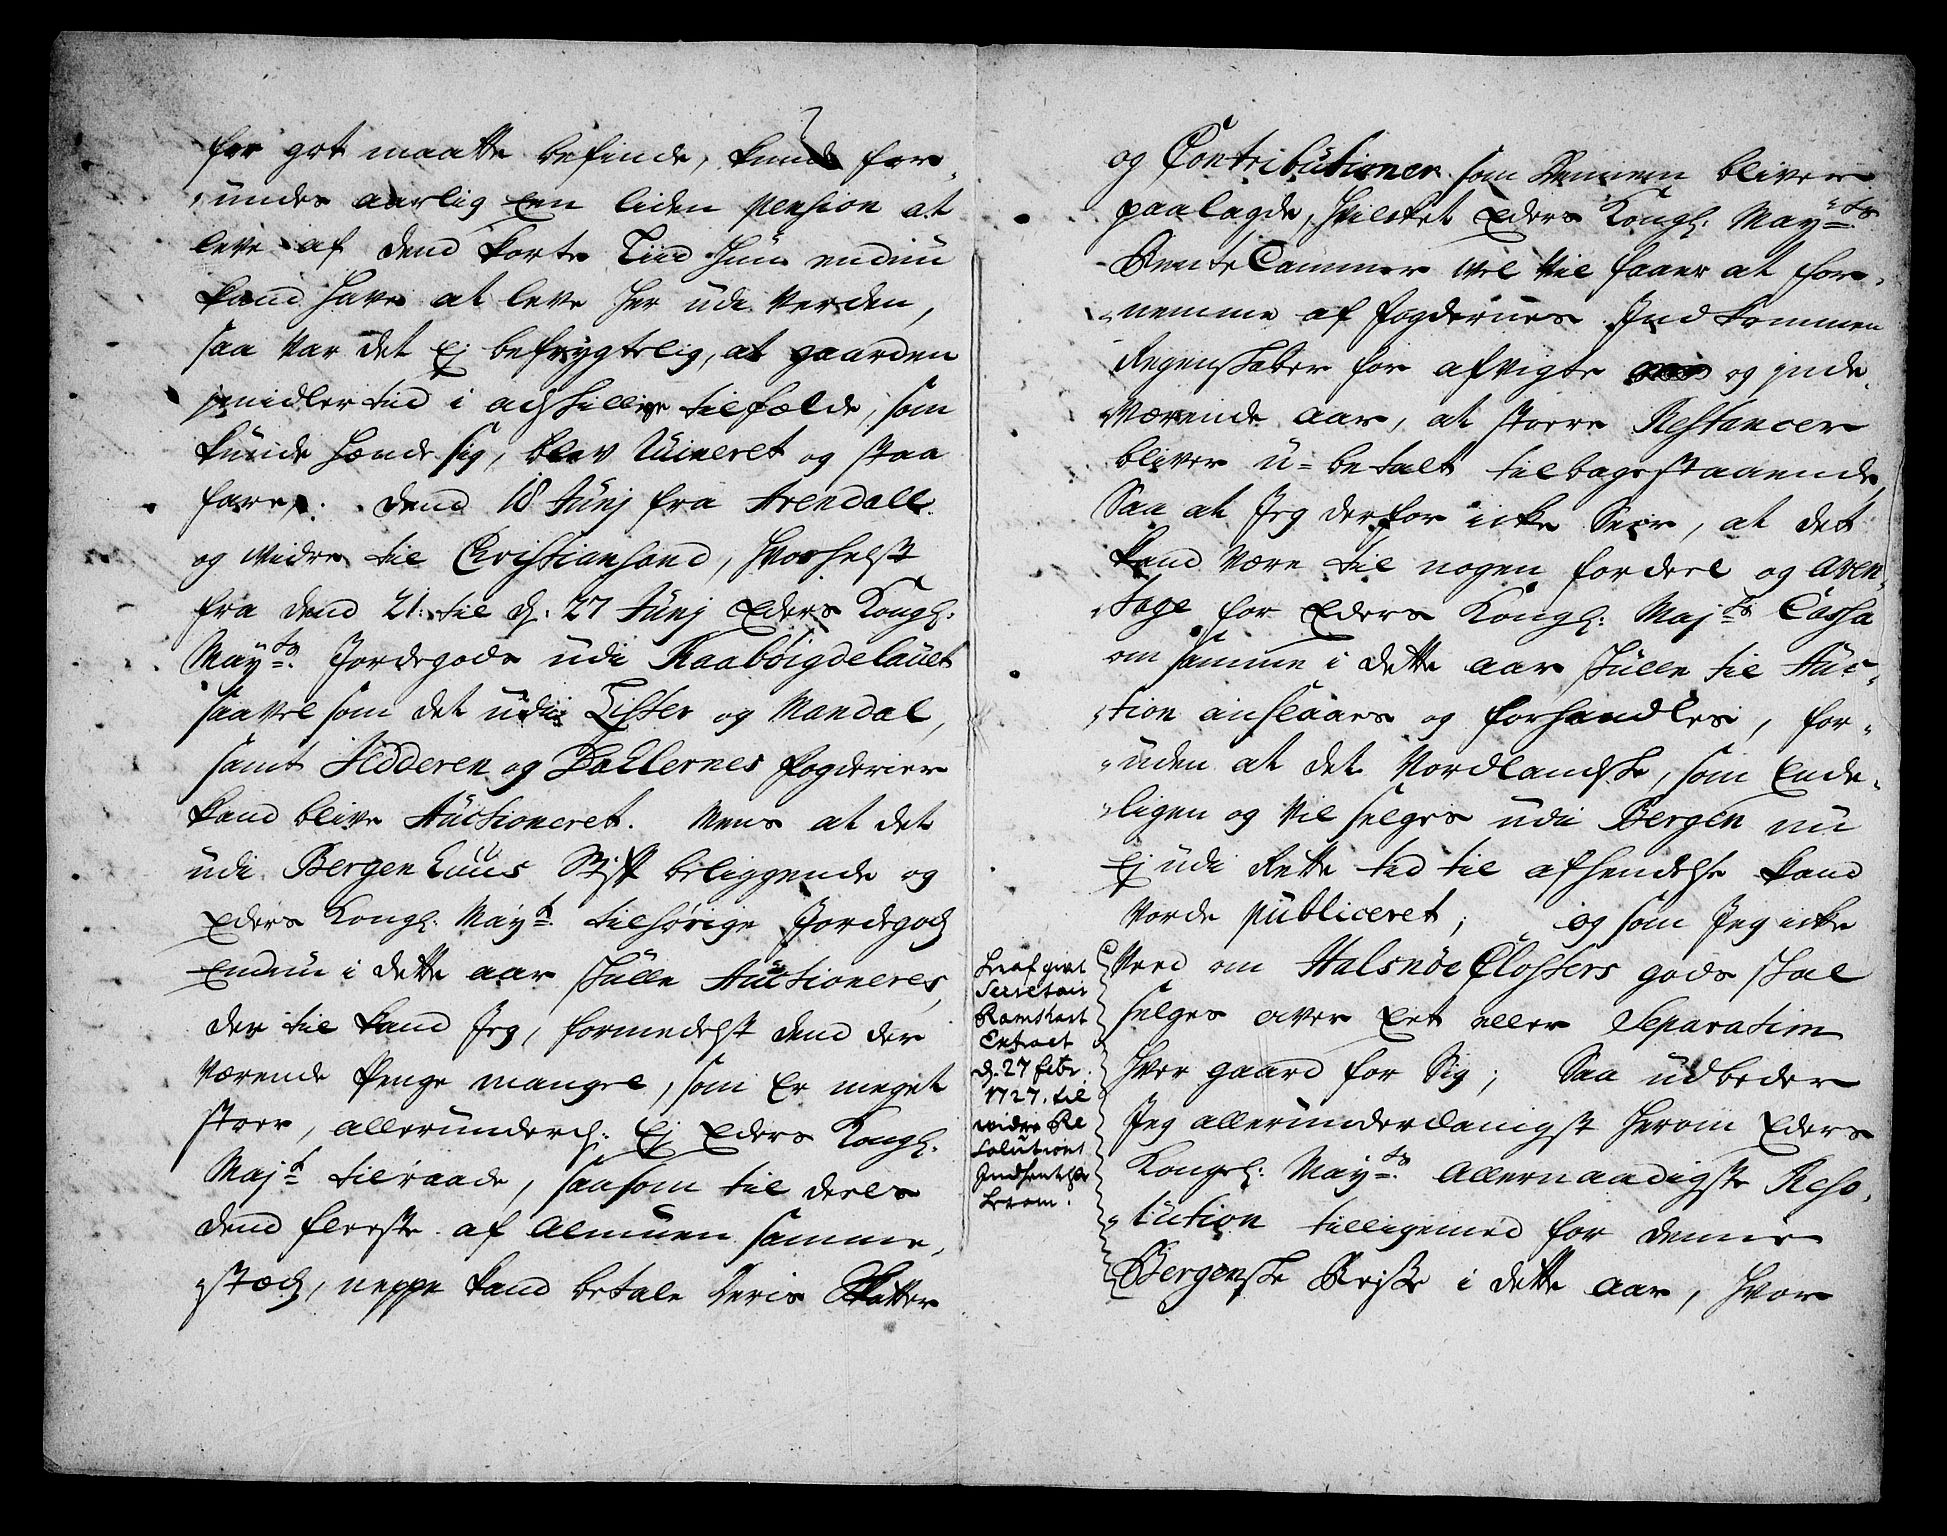 for got maatte befinde, kunde for,,
,,undes aarlig Een liden pension at
leve af dend korte Tiid Hun endnu
kand have at leve her udi Verden,
saa var det Ej befrygtelig, at gaarden
jmidlertid i adskillige tilfælde, som
kunde hænde sig, blev Ruineret og staa
fare. dend 18 Junj fra Arendall
og vidre til Christiansand, hvorhelst
fra dend 21. til d. 27 Junj Eders Kongl:
Mayts. Jordegods udi Raabøigdelauet
saavel som det udi Lister og Mandal,
samt Jedderen og Dallernes fogderier
kand blive Auctioneret. Mens at det
udi Bergenhuus Stift beliggende og
Eders Kongl: Mayt. tilhørige Jordegods
Endnu i dette aar skulle Auctioneres,
der til kand Jeg, formedelst dend der
værende Penge mangel, som Er meget
stoer, allerunderd: Ej Eders Kongl:
Majt tilraade, saasom til deels
dend fleeste af Almuen samme,,
,,stæds, neppe kand betale deris Skatter
og Contributioner som dennem bliver
paalagde, hvilket Eders Kongl: Mayts
RenteCammer vel vil faaer at for,,
,,nemme af fogdernes Indkommen
Regenskaber for afvigte og jnde,,
,,værende aar, at stoere Restancer
bliver u-betalt tilbagestaaende,
Saa at Jeg derfor icke Seer, at det
kand være til nogen fordeel og aven,,
,,tage for Eders Kongl: Majts Cassa
om samme i dette aar skulle til Auc,,
,,tion anslaaes og forhandles, for,,
,,uden at det Nordlandske, som Ende,,
,,ligen og vil selges udi Bergen nu
Ej udi Rette tid til afhendelse kand
vorde publiceret; og som Jeg icke
veed om Halsnøe Closters gods skal
selges over Eet eller Separatim
hver gaard for Sig; Saa udbeder
Jeg allerunderdanigst herom Eders
Kongel: Mayts. Allernaadigste Reso,,
,,lution tilligemed for denne
Bergenske Reise i dette aar, hvor
heraf givet
Secretair
Ramshart
Extract
d. 27 febr.
1727. til
vidre Re
solutions
Indhentelse
herom.